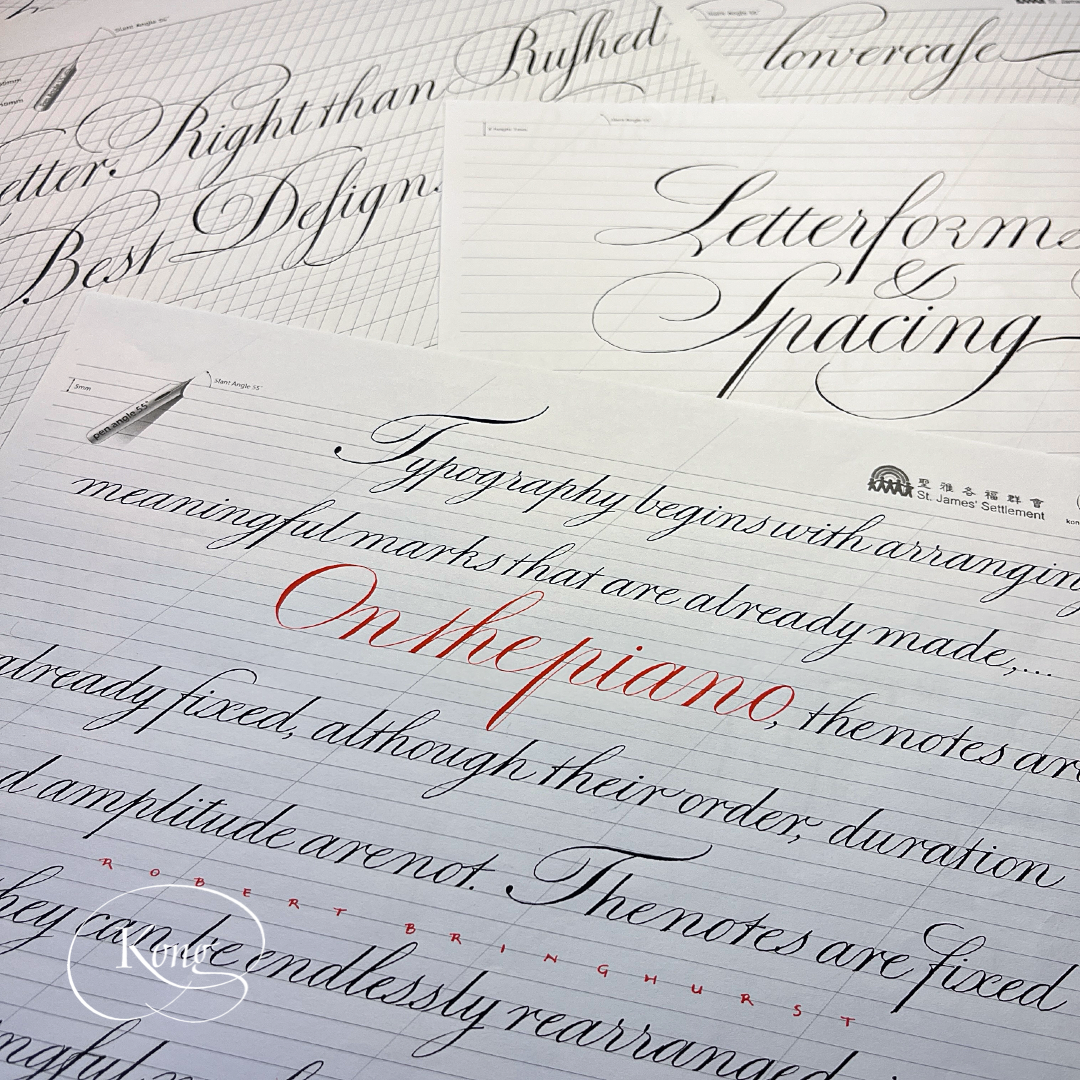 Slant Angle 55°
Right than Rushed
etter.
Best Design.
lowercase
Slant Angle 55°
Letterforms
&
Spacing
5mm
pen angle 55°
Slant Angle 55°
聖雅各福群會
St. James' Settlement
Typography begins with arranging
meaningful marks that are already made,...
On the piano, the notes are
already fixed, although their order, duration
d amplitude are not. The notes are fixed
ROBERT BRINGHURST
they can be endlessly rearranged
ingful
Kong